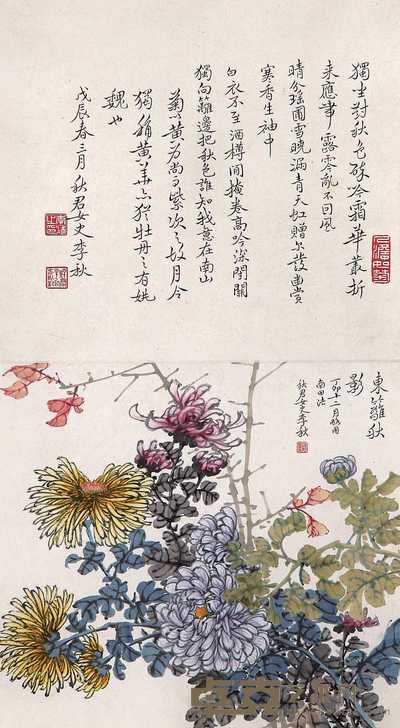 獨坐對秋色孤冷霜華叢折
來應事露零亂不回風
晴分瑤圃雪曉漏青天虹贈尔發幽賞
寒香生袖中
白衣不至酒樽閒擁卷高吟深閉關
獨向籬邊把秋色誰知我意在南山
菊以黃為尚而紫次之故月令
獨稱黃華亦猶牡丹之有姚
魏也
戊辰春三月秋君女史李秋
東籬秋
影
丁卯十二月略用
南田法
秋君女史李秋